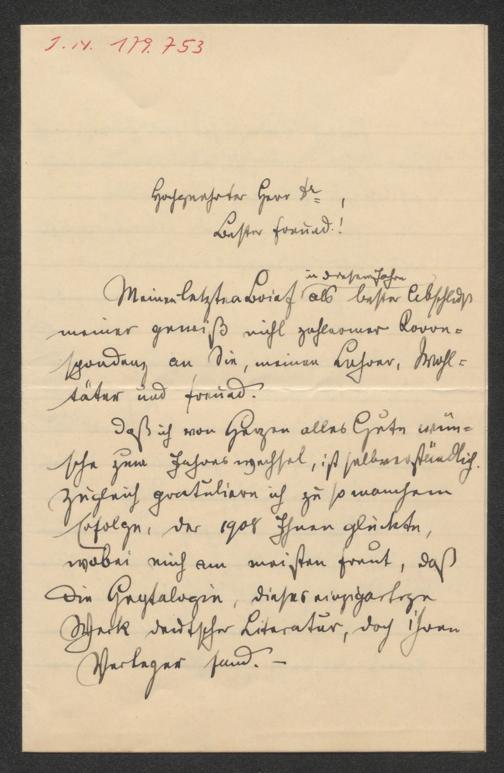 J.N. 179.753
Hochgeehrter Herr Dr.,
Bester Freund!
in diesem Jahre
Meinen letzten Brief als bester Abschluß
meiner gewiß nicht zahlarmen Korre-
spondenz an Sie, meinen Lehrer, Wohl-
täter und Freund.
Daß ich von Herzen alles Gute wün-
sche zum Jahreswechsel, ist selbverständlich.
Zugleich gratuliere ich zu so manchem
Erfolge, der 1908 Ihnen glückte,
wobei mich am meisten freut, daß
die Heptalogie, dieses einzigartige
Werk deutscher Literatur, doch ihren
Verleger fand. –